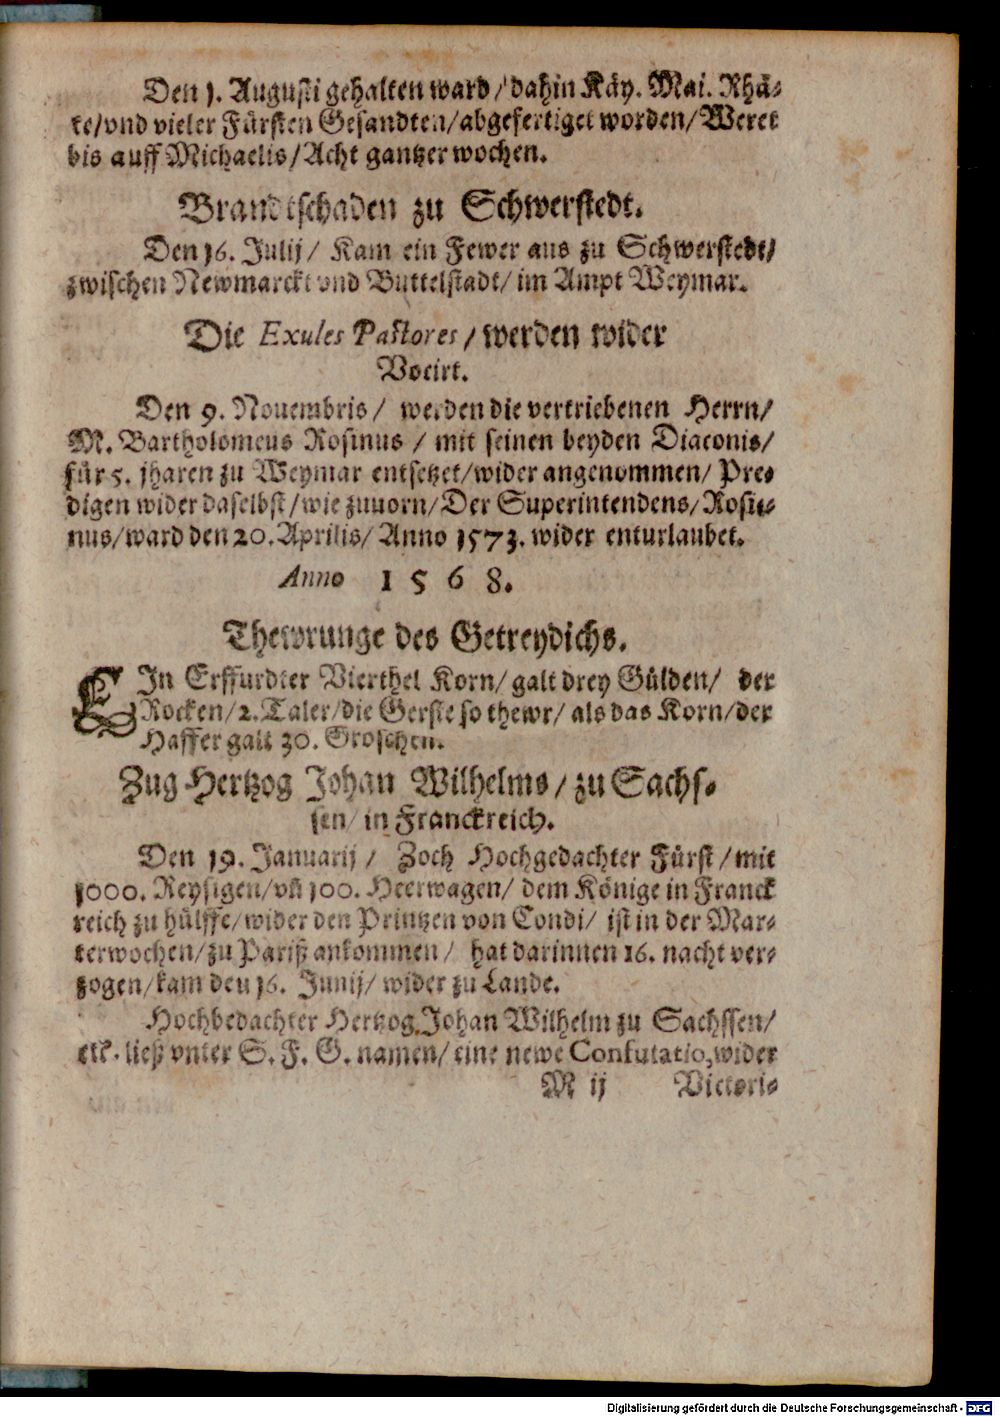 Den 1. Augusti gehalten ward/ dahin Käy. Mai. Rhä-
te/vnd vieler Fürsten Gesandten/abgefertiget worden/Weret
bis auff Michaelis/Acht gantzer wochen.
Brandtschaden zu Schwerstedt.
Den 16. Julij/ Kam ein Fewer aus zu Schwerstedt/
zwischen Newmarckt vnd Buttelstadt/ im Ampt Weymar.
Die Exules Pastores/ werden wider
Vocirt.
Den 9. Nouembris/ werden die vertriebenen Herrn/
M. Bartholomeus Rosinus / mit seinen beyden Diaconis/
für 5. jharen zu Weymar entsetzet/wider angenommen/ Pre-
digen wider daselbst/wie zuuorn/Der Superintendens/Rosi-
nus/ward den 20. Aprilis/ Anno 1573. wider enturlaubet.
Anno 1568.
Thewrunge des Getreydichs.
EIn Erffurdter Vierthel Korn/ galt drey Gülden/ der
Rocken/2. Taler/die Gerste so thewr/ als das Korn/der
Haffer galt 30. Groschen.
Zug Hertzog Johan Wilhelms/ zu Sachs-
sen/ in Franckreich.
Den 19. Januarij/ Zoch Hochgedachter Fürst/mit
1000. Reysigen/vñ 100. Heerwagen/ dem Könige in Franck
reich zu hülffe/wider den Printzen von Condi/ ist in der Mar-
terwochen/zu Pariß ankommen/ hat darinnen 16. nacht ver-
zogen/kam den 16. Junij/ wider zu Lande.
Hochbedachter Hertzog Johan Wilhelm zu Sachssen/
etc. ließ vnter S. F. G. namen/ eine newe Confutatio, wider
M ij Victori-
Digitalisierung gefördert durch die Deutsche Forschungsgemeinschaft - DFG